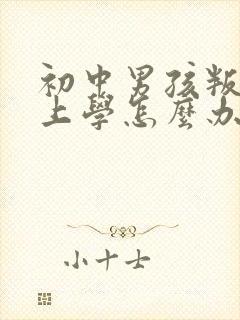 初中男孩叛
上學怎麼办
小十士